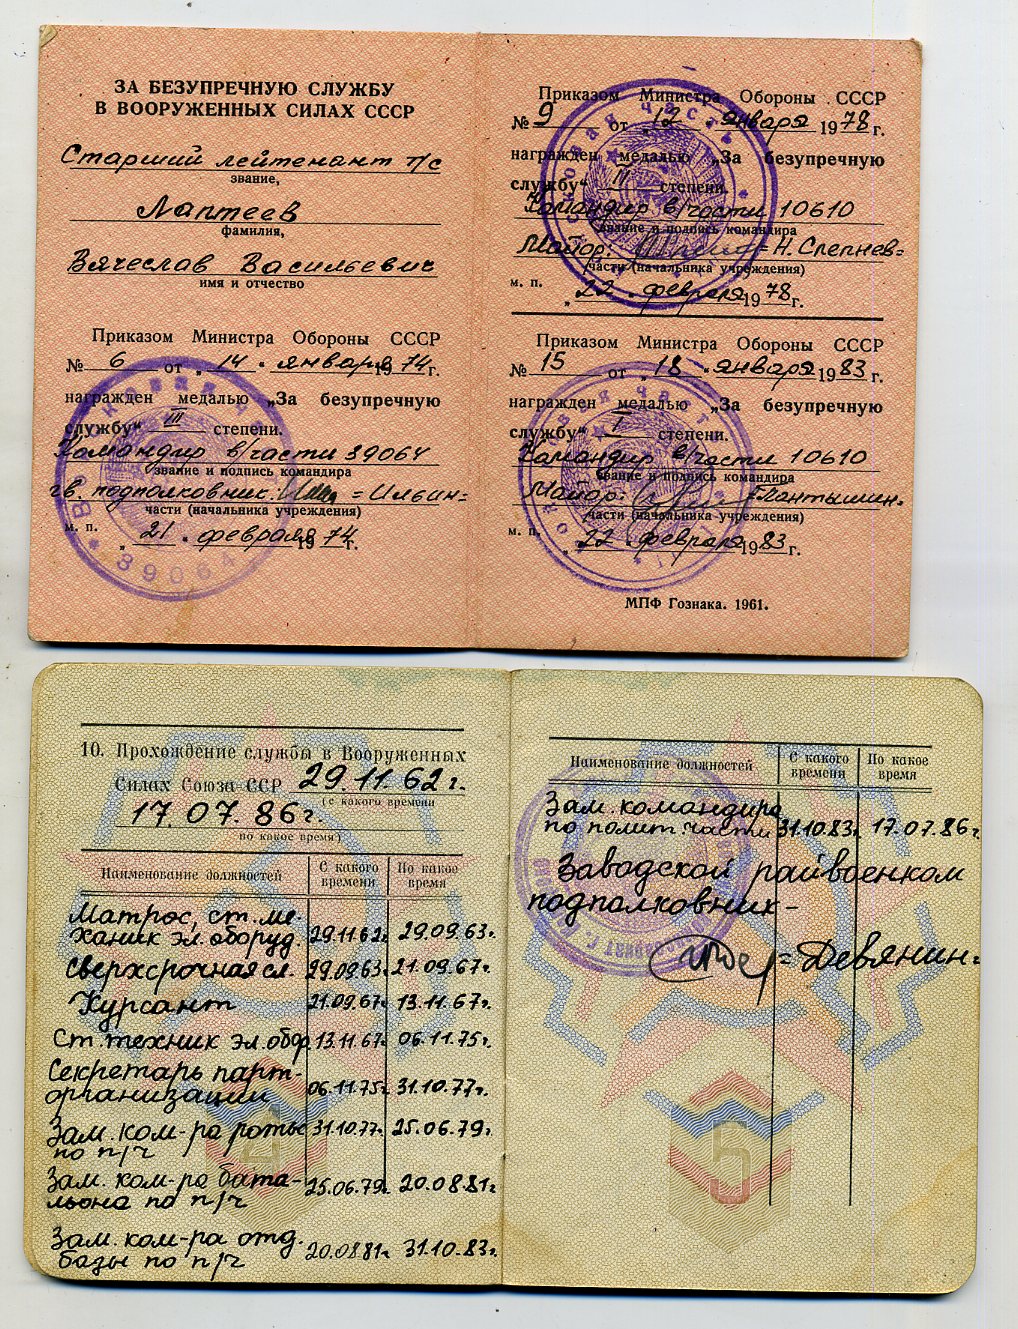 ЗА БЕЗУПРЕЧНУЮ СЛУЖБУ
В ВООРУЖЕННЫХ СИЛАХ СССР
Старший лейтенант т/с
звание,
Лаптеев
фамилия,
Вячеслав Васильевич
имя и отчество
Приказом Министра Обороны СССР
№ 6 от „ 14 " января 1974 г.
награжден медалью „За безупречную
службу" III степени.
Командир в/части 39064
звание и подпись командира
гв. подполковник: =Ильин=
части (начальника учреждения)
м. п.
„ 21 " февраля 1974 г.
39064
Приказом Министра Обороны СССР
№ 9 от „ 12 " января 1978 г.
награжден медалью „За безупречную
службу" II степени.
Командир в/части 10610
звание и подпись командира
Майор: =Н. Слепнев=
части (начальника учреждения)
м. п.
„ 22 " февраля 1978 г.
Приказом Министра Обороны СССР
№ 15 от „ 18 " января 1983 г.
награжден медалью „За безупречную
службу" I степени.
Командир в/части 10610
звание и подпись командира
Майор: =Лантышин=
части (начальника учреждения)
м. п.
„ 22 " февраля 1983 г.
МПФ Гознака. 1961.
10. Прохождение службы в Вооруженных
Силах Союза ССР 29.11.62г.
(с какого времени
17.07.86г.
по какое время)
Наименование должностей С какого времени По какое время
Матрос, ст. ме-
ханик эл. оборуд. 29.11.62г. 29.09.63г.
Сверхсрочная сл. 29.09.63г. 21.09.67г.
Курсант 21.09.67г. 13.11.67г.
Ст. техник эл. обор. 13.11.67г. 06.11.75г.
Секретарь парт-
организации 06.11.75г. 31.10.77г.
Зам. ком-ра роты
по п/ч 31.10.77г. 25.06.79г.
Зам. ком-ра бата-
льона по п/ч 25.06.79г. 20.08.81г.
Зам. ком-ра отд.
базы по п/ч 20.08.81г. 31.10.83г.
4
Наименование должностей С какого времени По какое время
Зам. командира
по полит части 31.10.83г. 17.07.86г.
Заводской райвоенком
подполковник-
=Девянин=
5